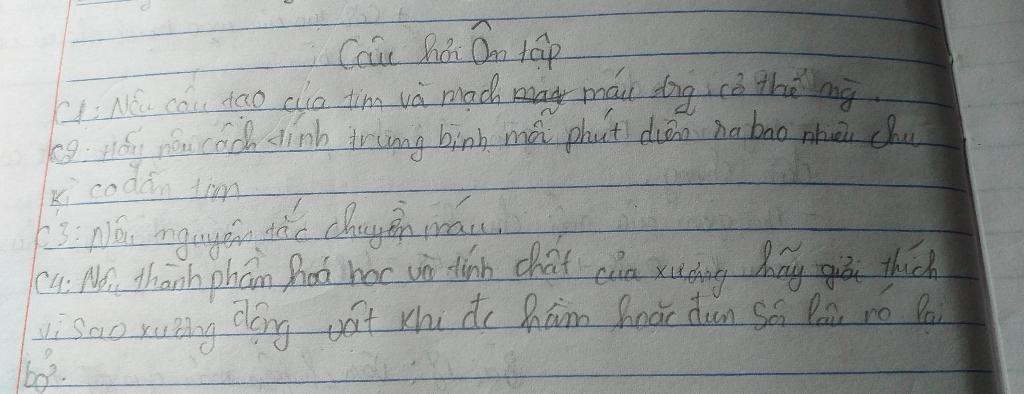 Câu hỏi Ôn tập
C1: Nêu cấu tạo của tim và mạch máu trong cơ thể ng
C2: Hãy nêu cách tính trung bình mỗi phút diễn ra bao nhiêu chu
kì co dãn tim
C3: Nêu nguyên tắc chuyền máu.
C4: Nêu thành phần hoá học và tính chất của xương hãy giải thích
vì sao xương động vật khi đc hầm hoặc đun sôi lâu nó lại
bở.